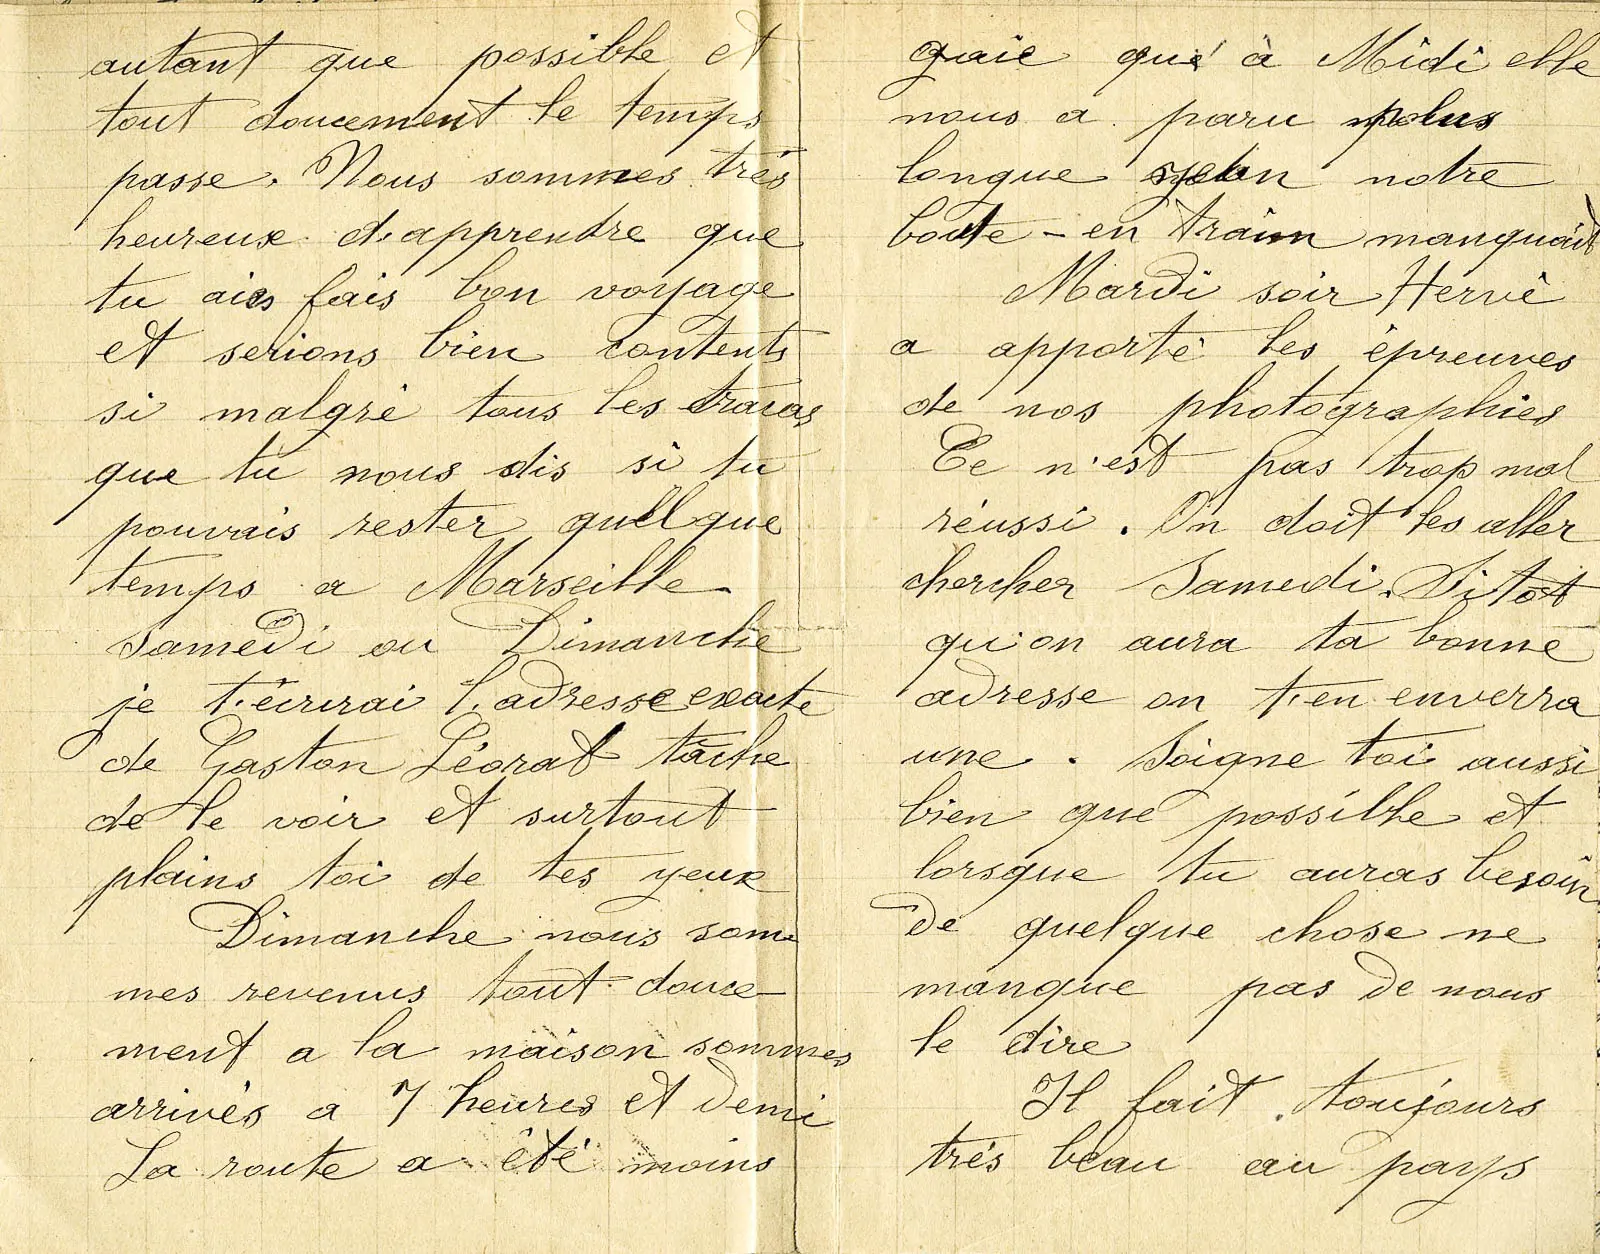 autant que possible et
tout doucement le temps
passe. Nous sommes très
heureux d'apprendre que
tu aies fais bon voyage
et serions bien contents
si malgré tous les tracas
que tu nous dis si tu
pouvais rester quelque
temps a Marseille
Samedi ou Dimanche
je t'écrirai l'adresse exacte
de Gaston Léorat tâche
de le voir et surtout
plains toi de tes yeux
Dimanche nous som
mes revenus tout douce
ment a la maison sommes
arrivés a 7 heures et demi
La route a été moins
gaie qué à Midi elle
nous a paru plus
longue notre
boute-en train manquait
Mardi soir Hervé
a apporté les épreuves
de nos photographies
Ce n'est pas trop mal
réussi. On doit les aller
chercher Samedi. Sitôt
qu'on aura ta bonne
adresse on t'en enverra
une. Soigne toi aussi
bien que possible et
lorsque tu auras besoin
de quelque chose ne
manque pas de nous
le dire
Il fait toujours
trés beau au pays